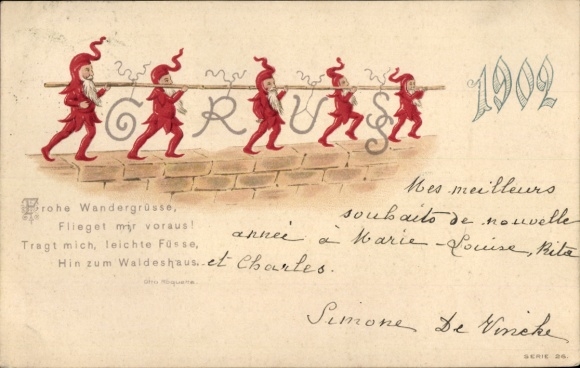 1902
GRUSS
Frohe Wandergrüsse,
Flieget mir voraus!
Tragt mich, leichte Füsse,
Hin zum Waldeshaus.
Mes meilleurs
souhaits de nouvelle
année à Marie-Louise, Rita
et Charles.
Simone De Vincke
SERIE 26.